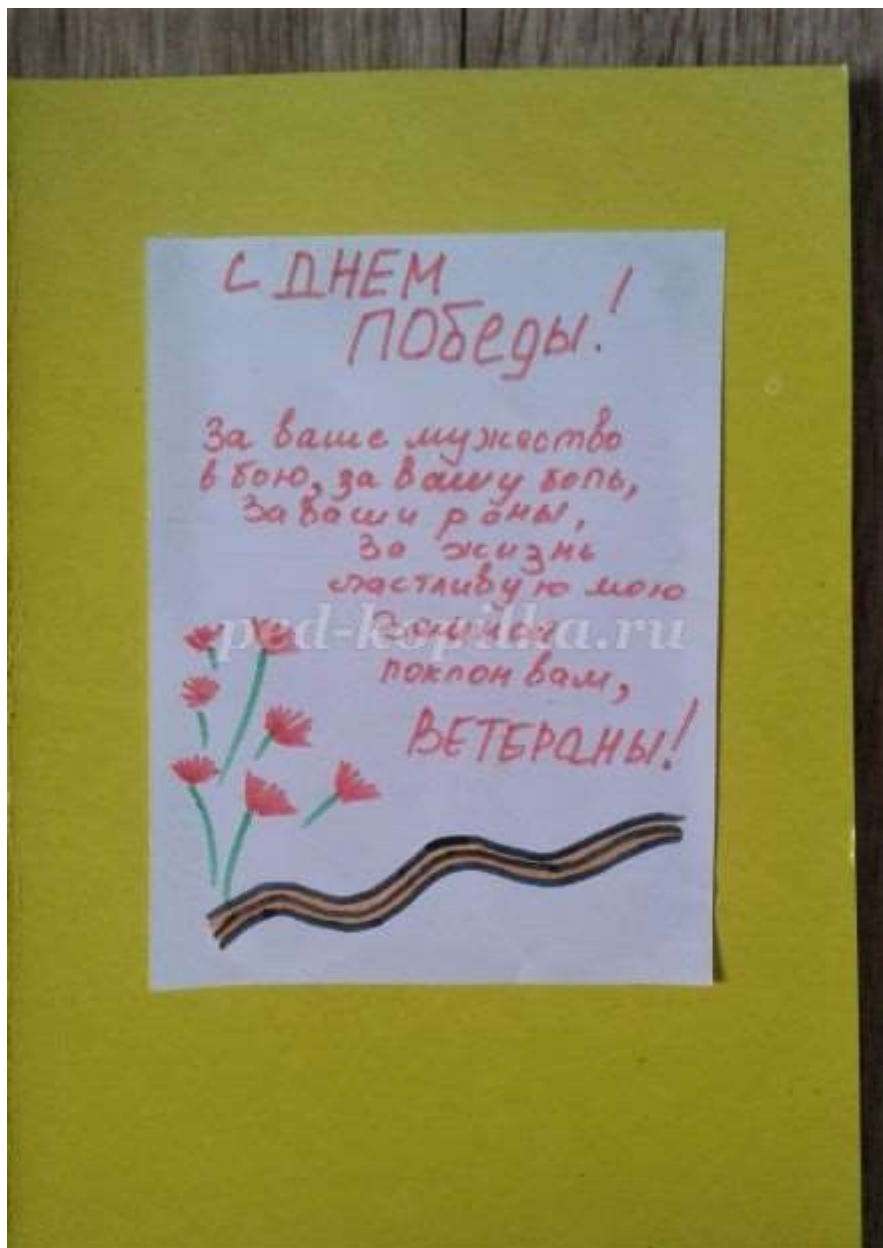 С ДНЕМ
ПОБЕДЫ!
За ваше мужество
в бою, за вашу боль,
За ваши раны,
За жизнь
счастливую мою
Земной
поклон вам,
ВЕТЕРАНЫ!
ped-kopilka.ru